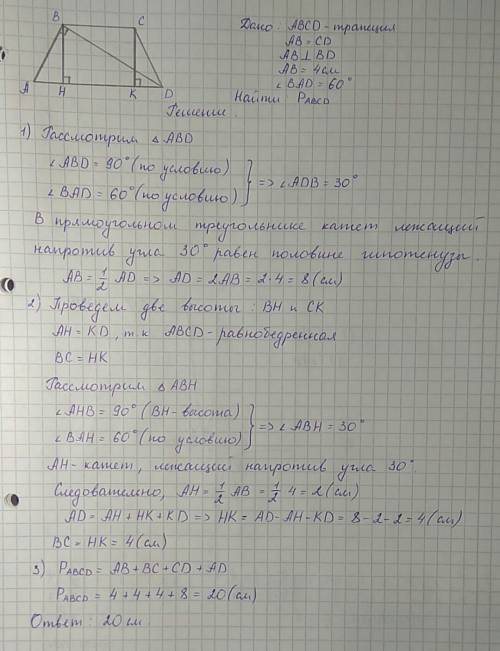 B
C
A
H
K
D
Дано: ABCD - трапеция
AB = CD
AB ⊥ BD
AB = 4 см
∠BAD = 60°
Найти P_ABCD
Решение.
1) Рассмотрим △ ABD
∠ABD = 90° (по условию)
∠BAD = 60° (по условию) } => ∠ADB = 30°
В прямоугольном треугольнике катет лежащий
напротив угла 30° равен половине гипотенузы.
AB = 1/2 AD => AD = 2AB = 2·4 = 8 (см)
2) Проведем две высоты: BH и CK
AH = KD, т.к ABCD - равнобедренная
BC = HK
Рассмотрим △ ABH
∠AHB = 90° (BH - высота)
∠BAH = 60° (по условию) } => ∠ABH = 30°
AH - катет, лежащий напротив угла 30°.
Следовательно, AH = 1/2 AB = 1/2 4 = 2 (см)
AD = AH + HK + KD => HK = AD - AH - KD = 8 - 2 - 2 = 4 (см)
BC = HK = 4 (см)
3) P_ABCD = AB + BC + CD + AD
P_ABCD = 4 + 4 + 4 + 8 = 20 (см)
Ответ: 20 см